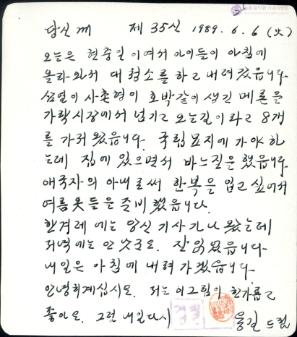 당신께 제35신 1989. 6. 6 (火)
오늘은 현충일이여서 아이들이 아침에
올라와서 대청소를 하고 내려갔읍니다
사촌형이 호박같이 생긴 메론을
가락시장에서 넘기고 오는길이라고 8개
를 가져왔읍니다. 국립묘지에 가야하
는데 집에 있으면서 바느질을 했읍니다
애국자의 아내로써 한복을 입고 싶어서
여름옷들을 준비했읍니다.
한겨레에는 당신 기사가 나왔는데
저녁에는 안 잘 있었읍니다
내일은 아침에 내려가겠읍니다
안녕히 계십시오. 저는 이그림이 한가롭고
좋아요. 그럼 내일 다시 드림